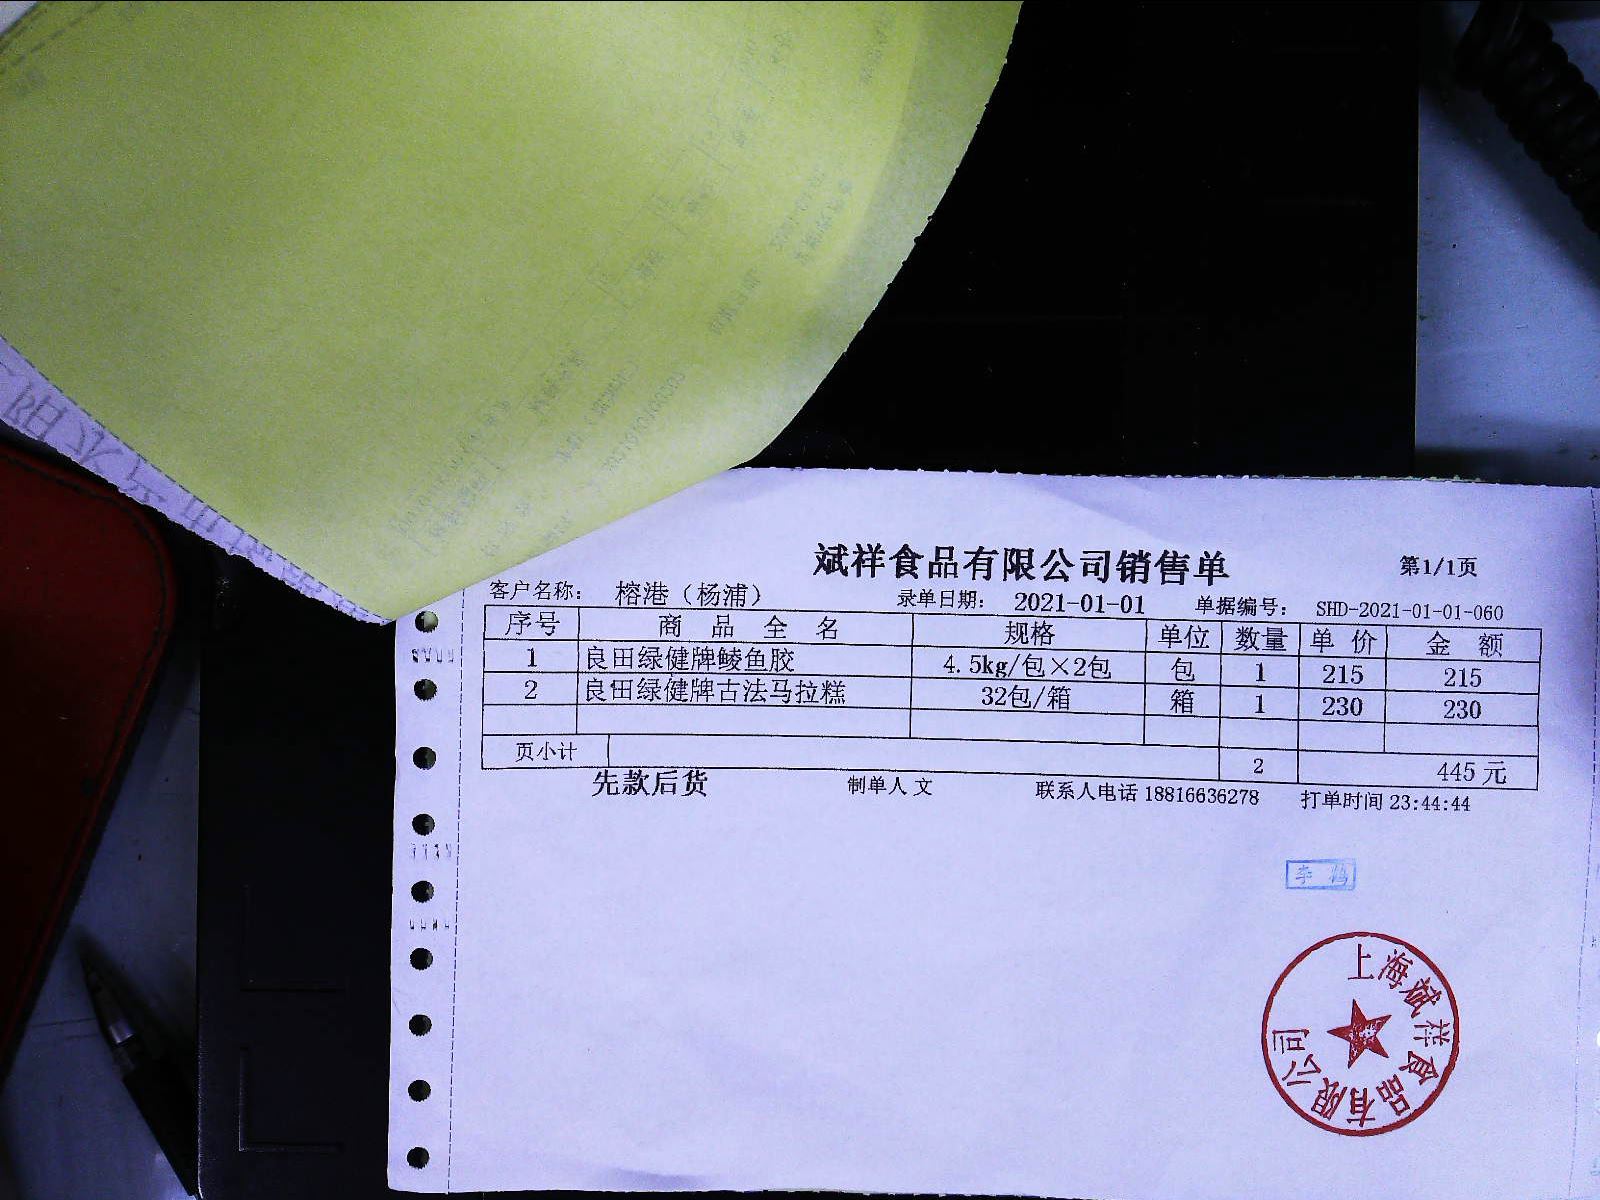 斌祥食品有限公司销售单
第1/1页
客户名称： 榕港（杨浦） 录单日期： 2021-01-01 单据编号： SHD-2021-01-01-060
序号 商品全名 规格 单位 数量 单价 金额
1 良田绿健牌鲮鱼胶 4.5kg/包×2包 包 1 215 215
2 良田绿健牌古法马拉糕 32包/箱 箱 1 230 230
页小计 2 445元
先款后货 制单人 文 联系人电话 18816636278 打单时间 23:44:44
上海斌祥食品有限公司